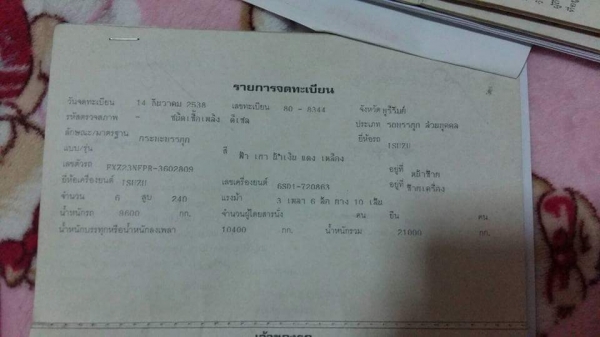 รายการจดทะเบียน
วันจดทะเบียน 14 ธันวาคม 2538 เลขทะเบียน 80 - 8344 จังหวัด บุรีรัมย์
รหัสตรวจสภาพ - ชนิดเชื้อเพลิง ดีเซล ประเภท รถบรรทุก ส่วนบุคคล
ลักษณะ/มาตรฐาน กระบะบรรทุก ยี่ห้อรถ ISUZU
แบบ/รุ่น สี ฟ้า เทา แดง เหลือง
เลขตัวรถ FXZ23NFPR-3602809 อยู่ที่
ยี่ห้อเครื่องยนต์ ISUZU เลขเครื่องยนต์ 6SD1-720863 อยู่ที่
จำนวน 6 สูบ 240 แรงม้า 3 เพลา 6 ล้อ ยาง 10 เส้น
น้ำหนักรถ 9600 กก. จำนวนผู้โดยสารนั่ง คน ยืน คน
น้ำหนักบรรทุกหรือน้ำหนักลงเพลา 10400 กก. น้ำหนักรวม 21000 กก.
เจ้าของรถ